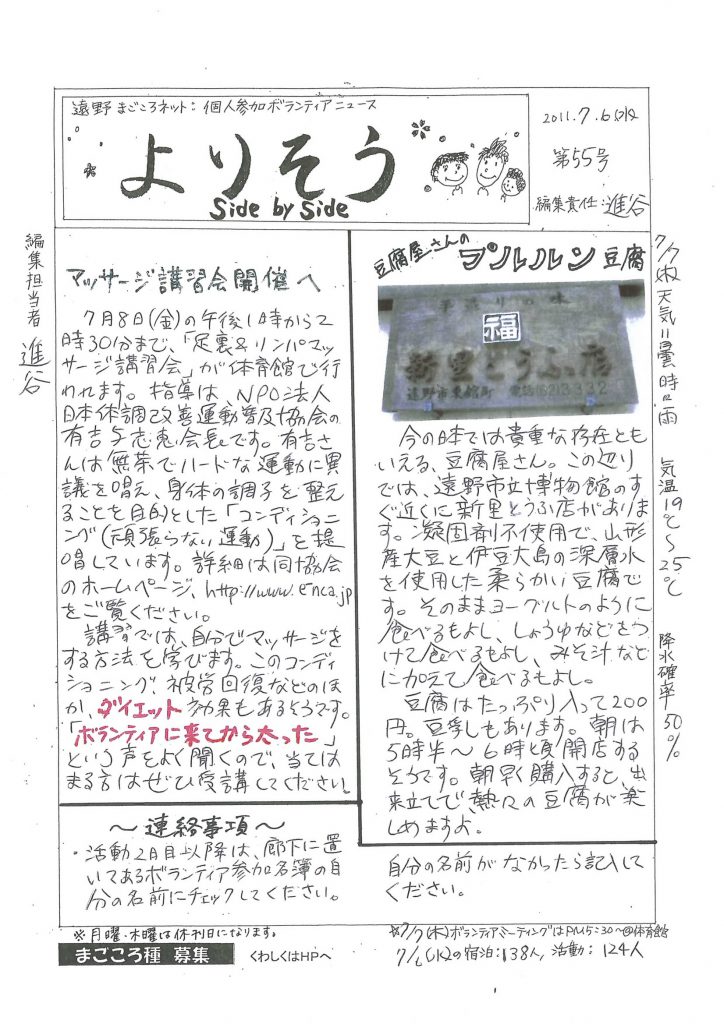 遠野まごころネット：個人参加ボランティアニュース
よりそう
Side by Side
2011.7.6(水)
第55号
編集責任：進谷
編集担当者 進谷
マッサージ講習会開催へ
7月8日(金)の午後1時から2
時30分まで、「足裏&リンパマッ
サージ講習会」が体育館で行
われます。指導は、NPO法人
日本体調改善運動普及協会の
有吉与志恵会長です。有吉さ
んは無茶でハードな運動に異
議を唱え、身体の調子を整え
ることを目的とした「コンディショニ
ング(頑張らない運動)」を提
唱しています。詳細は同協会
のホームページ、http://www.enca.jp
をご覧ください。
講習では、自分でマッサージを
する方法を学びます。このコンディ
ショニング、疲労回復などのほ
か、ダイエット効果もあるそうです。
「ボランティアに来てから太った」
という声をよく聞くので、当ては
まる方はぜひ受講してください。
豆腐屋さんのプルルン豆腐
手造りの味
福
新里とうふ店
遠野市東舘町 電話(62)3332
今の日本では貴重な存在とも
いえる、豆腐屋さん。この辺り
では、遠野市立博物館のす
ぐ近くに新里とうふ店がありま
す。凝固剤不使用で、山形
産大豆と伊豆大島の深層水
を使用した柔らかい豆腐で
す。そのままヨーグルトのように
食べるもよし、しょうゆなどをつ
けて食べるもよし、みそ汁など
に加えて食べるもよし。
豆腐はたっぷり入って200
円。豆乳もあります。朝は
5時半〜6時頃開店する
そうです。朝早く購入すると、出
来立てで熱々の豆腐が楽
しめますよ。
7/7(木)天気＝曇時々雨 気温19℃〜25℃ 降水確率50%
〜連絡事項〜
・活動2日目以降は、廊下に置
いてあるボランティア参加名簿の自
分の名前にチェックしてください。
自分の名前がなかったら記入して
ください。
※月曜・木曜は休刊日になります。
まごころ種 募集 くわしくはHPへ
※7/7(木)ボランティアミーティングはPM5:30〜@体育館
7/6(水)の宿泊：138人，活動：124人